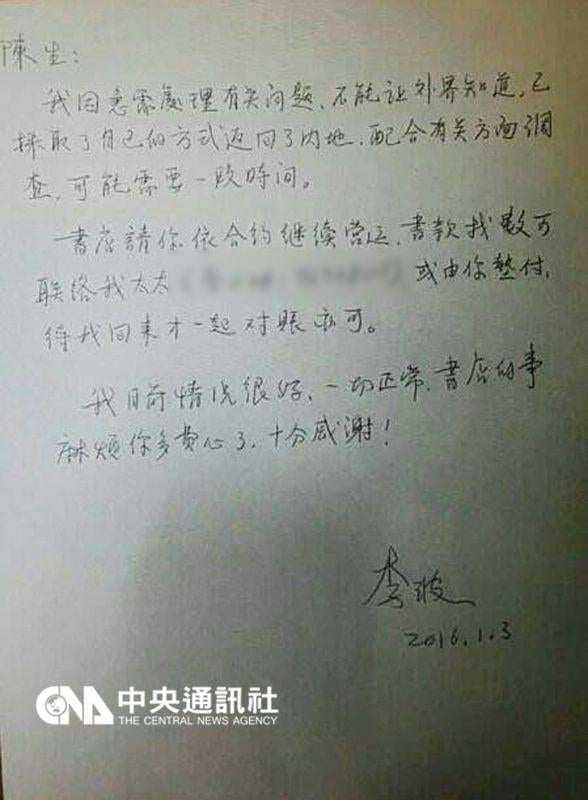 陳生:
我因急需處理有关问题,不能让外界知道,已
採取了自己的方式返回了內地,配合有关方面調
查,可能需要一段時间。
書店請你依合約继续营运,書款找數可
联络我太太
或由你墊付,
待我回来才一起对賬亦可。
我目前情况很好,一切正常,書店的事
麻煩你多費心了,十分感謝!
李波
2016.1.3
CNA 中央通訊社
THE CENTRAL NEWS AGENCY